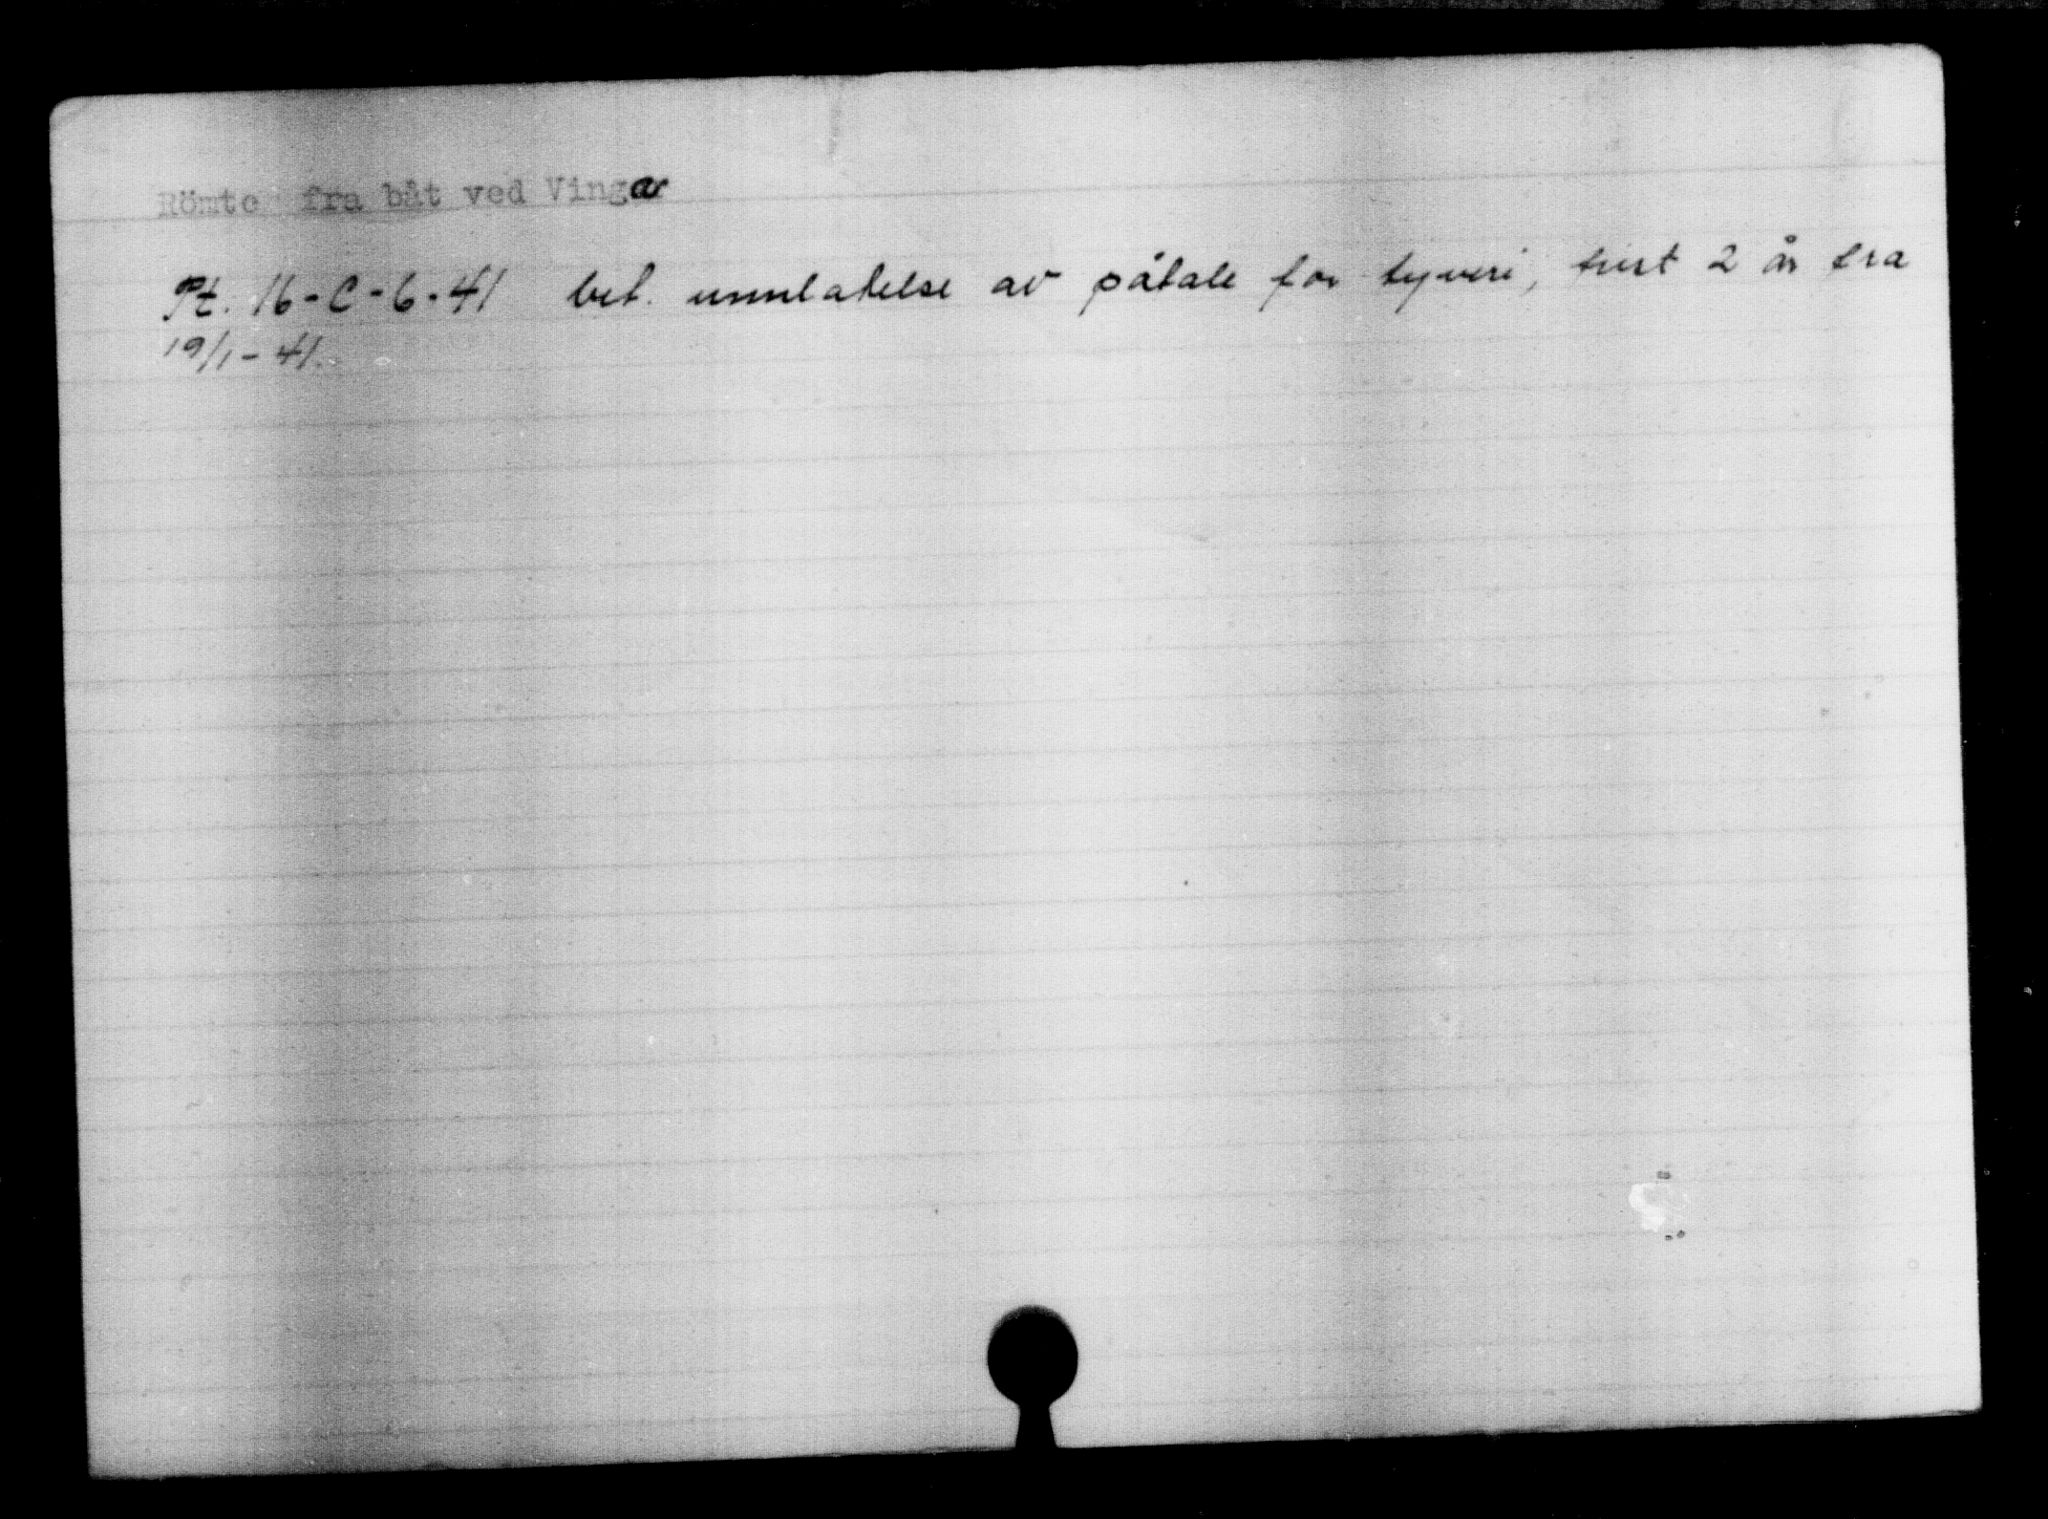 Römte fra båt ved Vinga
Pt. 16-C-6-41 bet. unnlatelse av påtale for tyveri, frist 2 år fra
19/1-41.